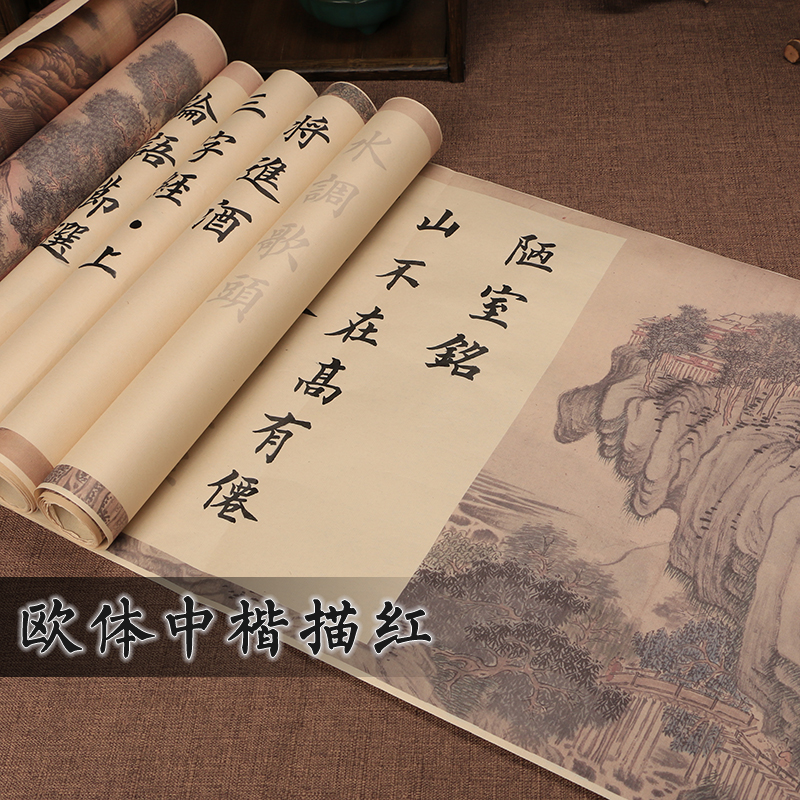 陋室銘
山不在髙有僊
水調歌頭
将進酒
三字經·上
論語節選
欧体中楷描红